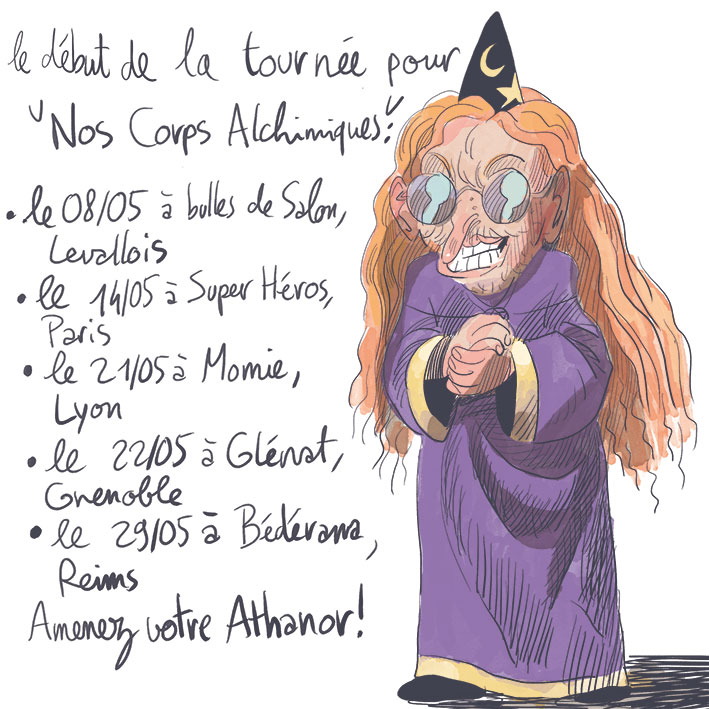 le début de la tournée pour
"Nos Corps Alchimiques":
• le 08/05 à bulles de Salon,
Levallois
• le 14/05 à Super Héros,
Paris
• le 21/05 à Momie,
Lyon
• le 22/05 à Glénat,
Grenoble
• le 29/05 à Bédérama,
Reims
Amenez votre Athanor!